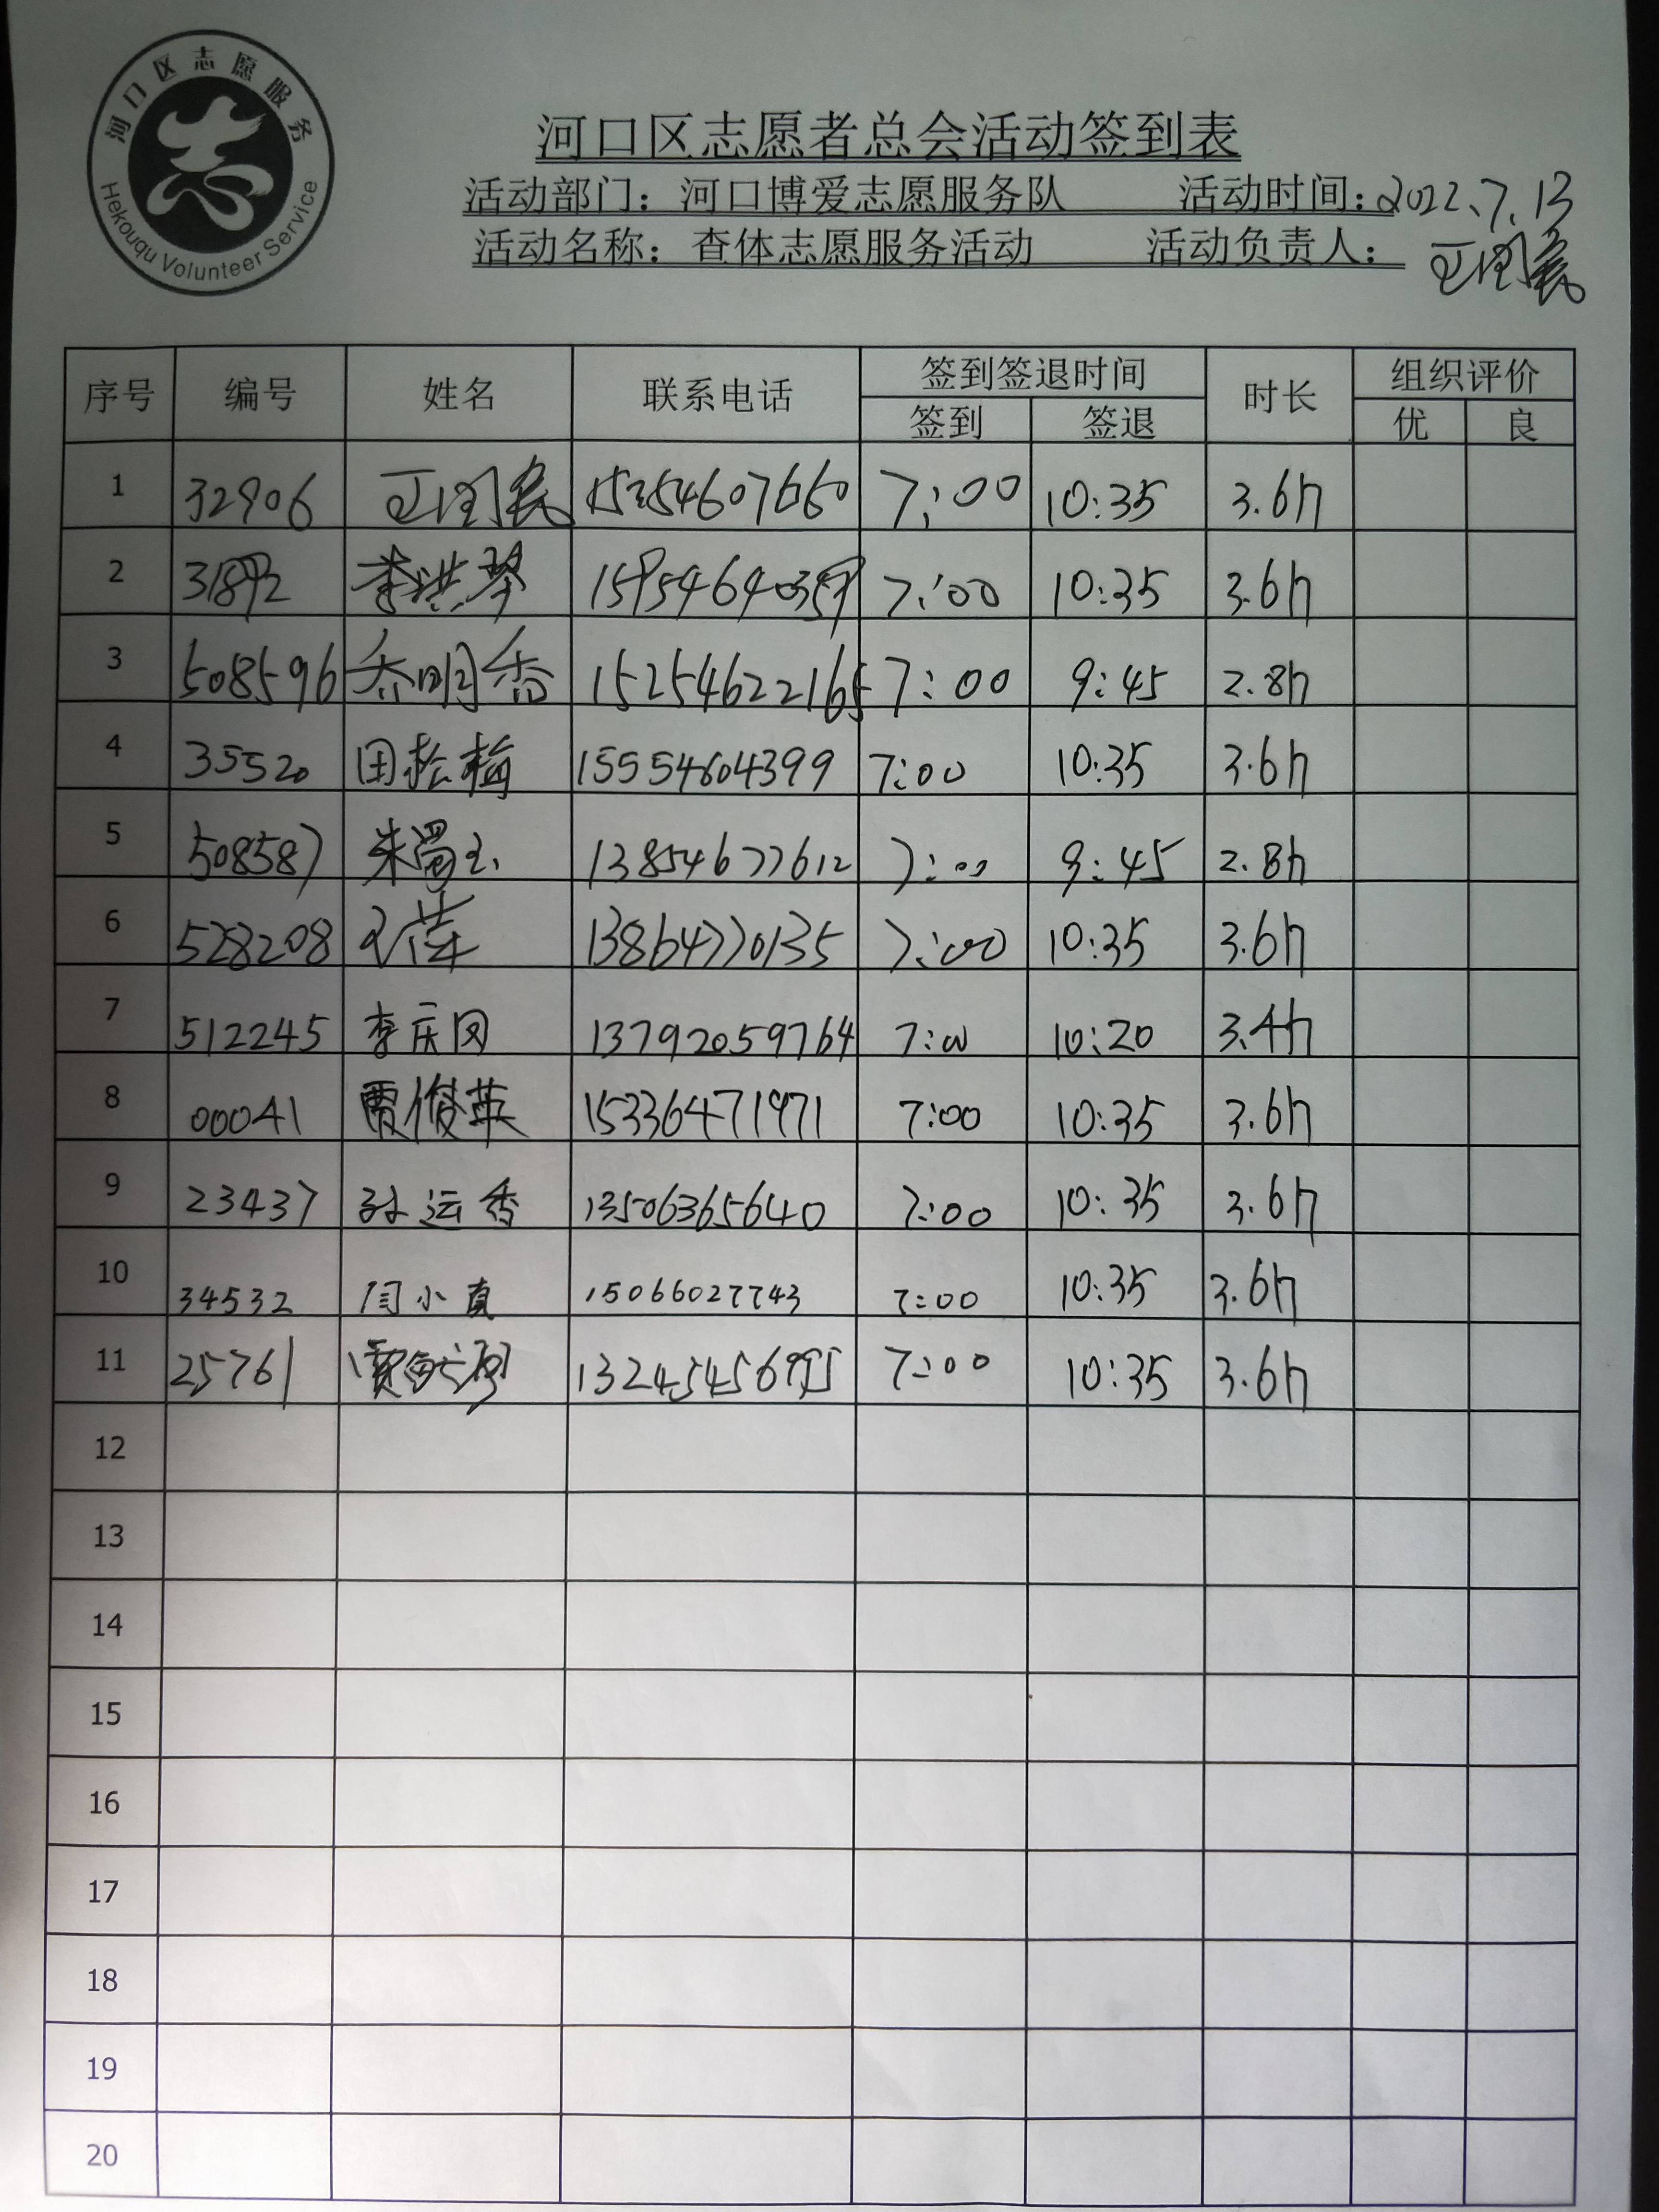 河口区志愿服务
Hekouqu Volunteer Service
河口区志愿者总会活动签到表
活动部门：河口博爱志愿服务队 活动时间：2022.7.13
活动名称：查体志愿服务活动 活动负责人：
序号 编号 姓名 联系电话 签到签退时间 时长 组织评价
签到 签退 优 良
1 32906 15254607660 7:00 10:35 3.6h
2 31892 李洪琴 7:00 10:35 3.6h
3 508596 乔明香 15254622165 7:00 9:45 2.8h
4 35520 田松梅 15554604399 7:00 10:35 3.6h
5 508587 13854677612 7:00 9:45 2.8h
6 528208 王萍 13864770135 7:00 10:35 3.6h
7 512245 李庆风 13792059764 7:00 10:20 3.4h
8 00041 贾俊英 15336471971 7:00 10:35 3.6h
9 23437 孙运香 13506365640 7:00 10:35 3.6h
10 34532 闫小真 15066027743 7:00 10:35 3.6h
11 25761 7:00 10:35 3.6h
12
13
14
15
16
17
18
19
20